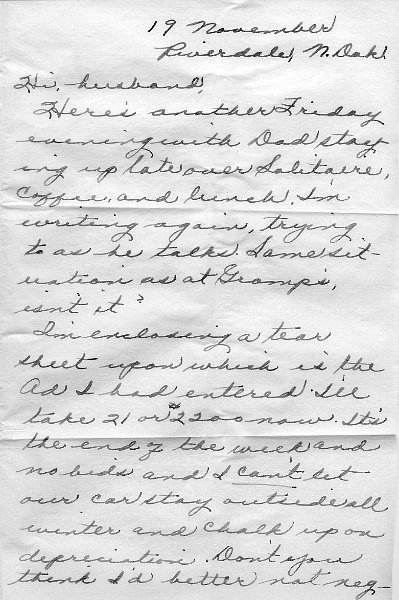 19 November
Riverdale, N. Dak.
Hi, husband,
Here's another Friday
evening with Dad stay-
ing up late over Solitaire,
coffee, and lunch. I'm
writing again, trying
to as he talks. Same sit-
uation as at Gramp's,
isn't it?
I'm enclosing a tear
sheet upon which is the
Ad I had entered. I'll
take 21 or 2200 now. It's
the end of the week and
no bids and I can't let
our car stay outside all
winter and chalk up on
depreciation. Don't you
think I'd better not neg-